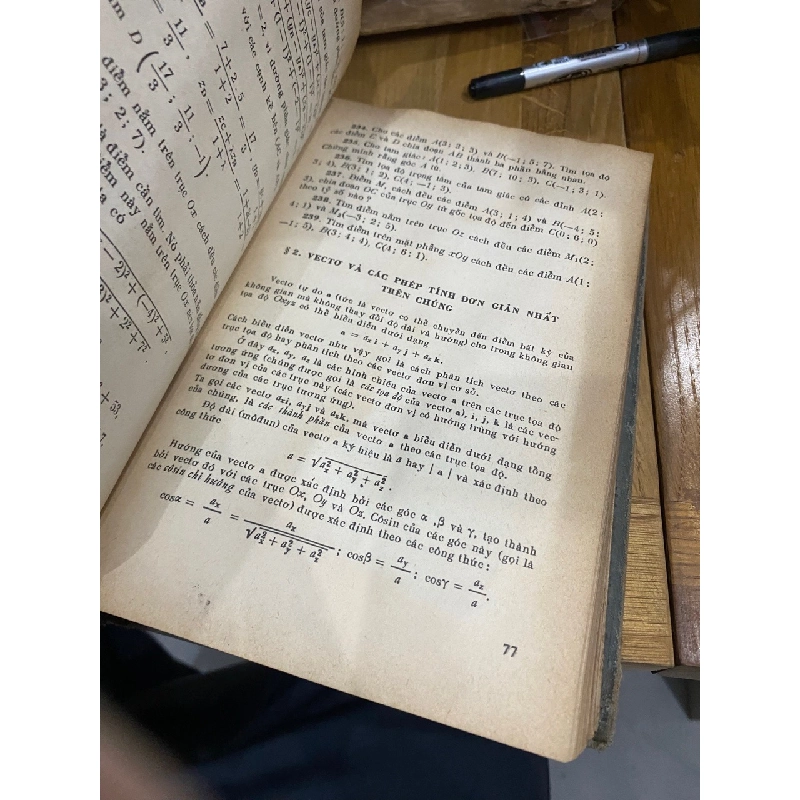 11
3
D ( 17/3 ; 11/3 ; −1 ).
3 ; 2 ; 7).
điểm nằm trên trục Ox cách đều
là điểm cần tìm. Nó phải
điểm này nằm trên trục Ox
ta có
234. Cho các điểm A(3; 3; 3) và B(−1; 5; 7). Tìm tọa độ
các điểm C và D chia đoạn AB thành ba phần bằng nhau.
235. Cho tam giác: A(1; 2; 3), B(7; 10; 3), C(−1; 3; 1).
Chứng minh rằng góc A tù.
236. Tìm tọa độ trọng tâm của tam giác có các đỉnh A(2;
3; 4), B(3; 1; 2), C(4; −1; 3).
237. Điểm M, cách đều các điểm A(3; 1; 4) và B(−4; 5;
3), chia đoạn OC của trục Oy từ gốc tọa độ đến điểm C(0; 6; 0)
theo tỷ số nào?
238. Tìm điểm nằm trên trục Ox cách đều các điểm M₁(2;
4; 1) và M₂(−3; 2; 5).
239. Tìm điểm trên mặt phẳng xOy cách đều các điểm A(1;
−1; 5), B(3; 4; 4), C(4; 6; 1).
§ 2. VECTƠ VÀ CÁC PHÉP TÍNH ĐƠN GIẢN NHẤT
TRÊN CHÚNG
Vectơ tự do a (tức là vectơ có thể chuyển đến điểm bất kỳ của
không gian mà không thay đổi độ dài và hướng) cho trong không gian
tọa độ Oxyz có thể biểu diễn dưới dạng
a = aₓi + aᵧj + a_z k.
Cách biểu diễn vectơ như vậy gọi là cách phân tích vectơ theo các
trục tọa độ hay phân tích theo các vectơ đơn vị cơ sở.
Ở đây aₓ, aᵧ, a_z là các hình chiếu của vectơ a trên các trục tọa độ
tương ứng (chúng được gọi là các tọa độ của vectơ a), i, j, k là các vec-
tơ đơn vị của các trục này (các vectơ đơn vị có hướng trùng với hướng
dương của các trục tương ứng).
Ta gọi các vectơ aₓi, aᵧj và a_z k, mà vectơ a biểu diễn dưới dạng tổng
của chúng, là các thành phần của vectơ a theo các trục tọa độ.
Độ dài (môđun) của vectơ a ký hiệu là a hay | a | và xác định theo
công thức
a = √(a²ₓ + a²ᵧ + a²_z).
Hướng của vectơ a được xác định bởi các góc α ,β và γ, tạo thành
bởi vectơ đó với các trục Ox, Oy và Oz. Côsin của các góc này (gọi là
các côsin chỉ hướng của vectơ) được xác định theo các công thức:
cosα = aₓ/a = aₓ/√(a²ₓ + a²ᵧ + a²_z) ; cosβ = aᵧ/a ; cosγ = a_z/a.
77